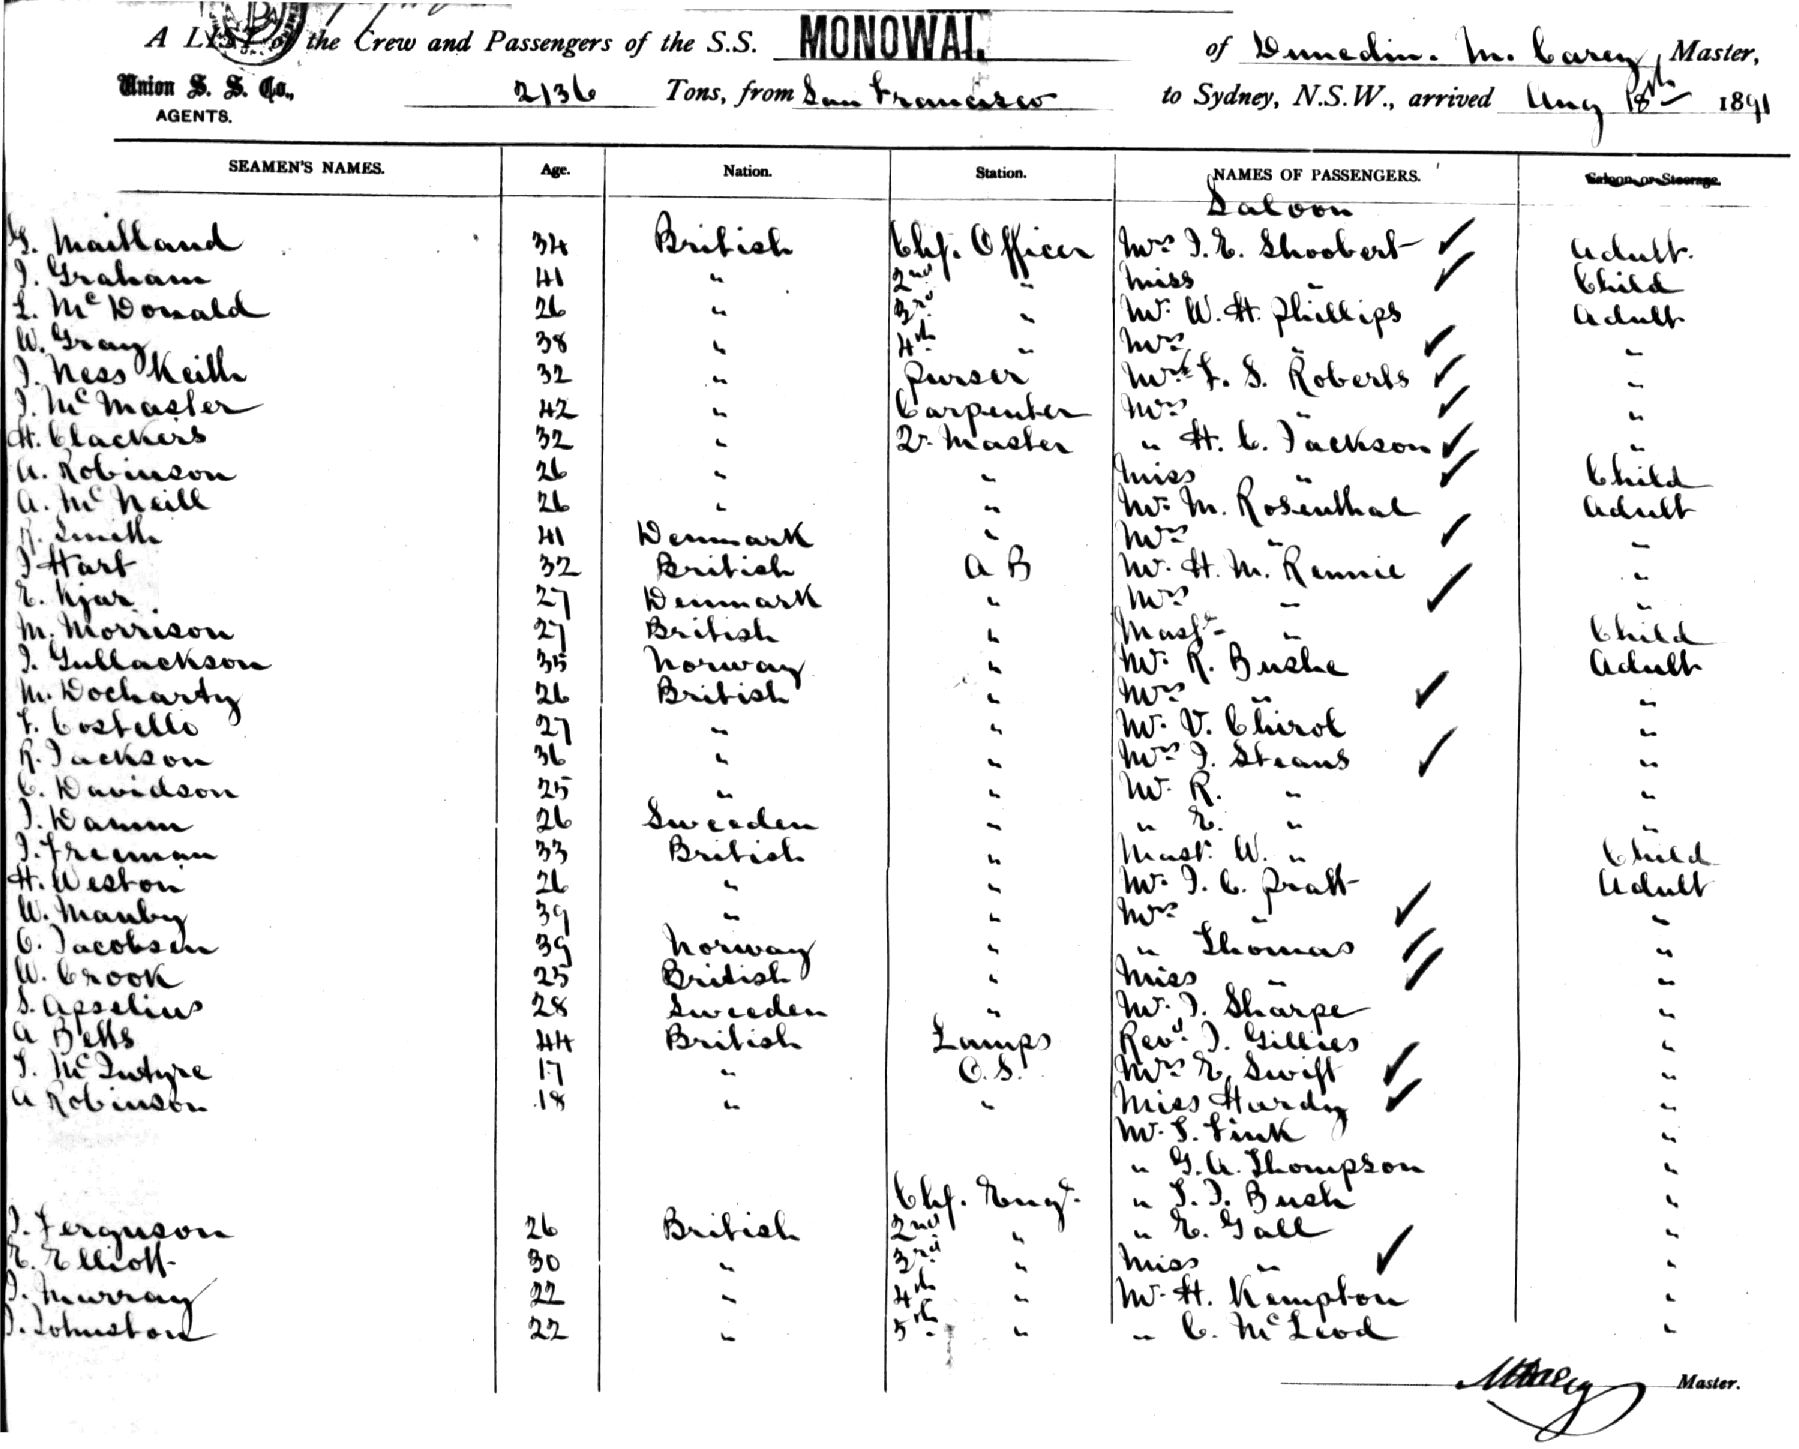 A LIST of the Crew and Passengers of the S.S. MONOWAI of Dunedin. M. Carey, Master,
Union S. S. Co., 2136 Tons, from San Francisco to Sydney, N.S.W., arrived Aug 18th 1891
AGENTS.
SEAMEN'S NAMES. Age. Nation. Station. NAMES OF PASSENGERS. Saloon or Steerage.
Saloon
G. Maitland 34 British Chf. Officer Mrs J. E. Shoobert Adult.
J. Graham 41 " 2nd " Miss " Child
L. McDonald 26 " 3rd " Mr. W. H. Phillips Adult
W. Gray 38 " 4th " Mrs " "
J. Ness Keith 32 " Purser Mrs F. S. Roberts "
J. McMaster 42 " Carpenter Mrs " "
H. Clackers 32 " Qr. Master " H. C. Jackson "
A. Robinson 26 " " Miss " Child
A. McNeill 26 " " Mr. M. Rosenthal Adult
R. Smith 41 Denmark " Mrs " "
J Hart 32 British A B Mr. H. M. Rennie "
E. Kjar 27 Denmark " Mrs " "
M. Morrison 27 British " Mastr " Child
J. Gullackson 35 Norway " Mr. R. Bushe Adult
M. Docharty 26 British " Mrs " "
F. Costello 27 " " Mr. V. Chirol "
R. Jackson 36 " " Mrs J. Steans "
C. Davidson 25 " " Mr. R. " "
J. Damm 26 Sweeden " " E. " "
J. Freeman 33 British " Mast. W. " Child
H. Weston 26 " " Mr. J. C. Pratt Adult
W. Manby 39 " " Mrs " "
C. Jacobsen 39 Norway " " Thomas "
W. Crook 25 British " Miss " "
S. Apselius 28 Sweeden " Mr. J. Sharpe "
A Betts 44 British Lamps Revd. J. Gillies "
T. McIntyre 17 " O.S. Mrs E. Swift "
A Robinson 18 " " Miss Hardy "
Mr. T. Fink "
" G. A. Thompson "
Chf. Engr. " T. J. Bush "
J. Ferguson 26 British 2nd " " E. Gall "
E. Elliott 30 " 3rd " Miss " "
J. Murray 22 " 4th " Mr. H. Kempton "
J. Johnston 22 " 5th " " C. McLeod "
M Carey Master.